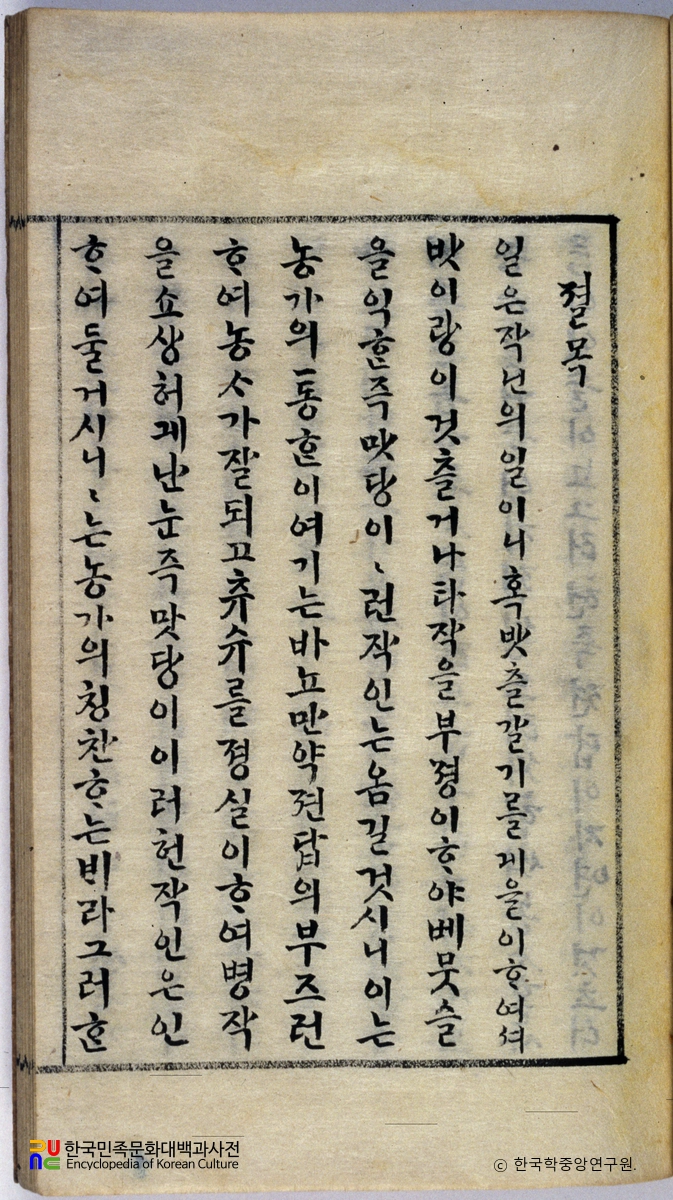 졀목
일은작넌의일이니혹밧츨갈기를게을이ᄒᆞ여셔
밧이랑이것츨거나타작을부졍이ᄒᆞ야베뭇슬
을익ᄒᆞᆫ즉맛당이〻런작인는옴길것시니이는
농가의통ᄒᆞᆫ이여기는바뇨만약젼답의부즈런
ᄒᆞ여농ᄉᆞ가잘되고츄슈를졍실이ᄒᆞ여병작
을쇼상허게난눈즉맛당이이러헌작인은인
ᄒᆞ여둘거시니〻는농가의칭찬ᄒᆞ는ᄇᆡ라그러ᄒᆞᆫ
한국민족문화대백과사전
Encyclopedia of Korean Culture
© 한국학중앙연구원.